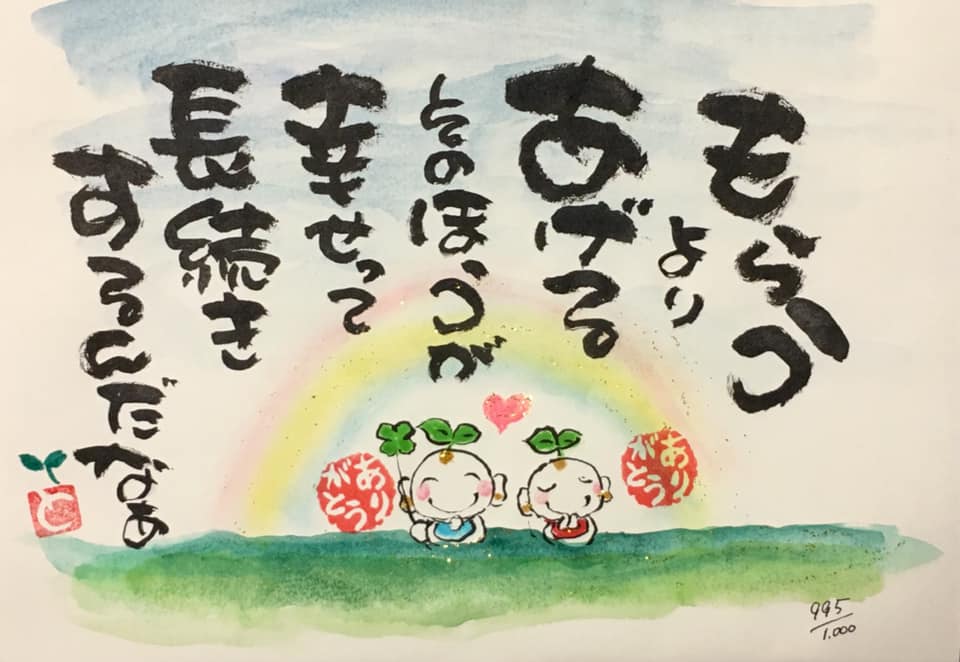 もらう
より
あげる
そのほうが
幸せって
長続き
するんだなぁ
あり
がとう
あり
がとう
995
1.000